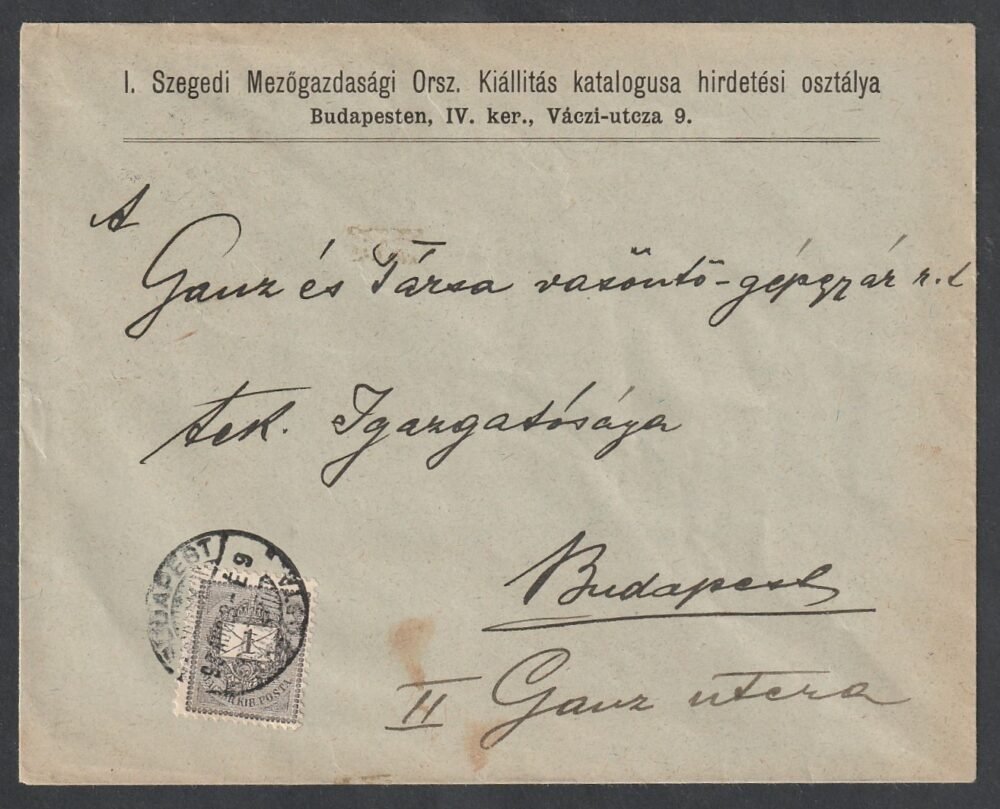 I. Szegedi Mezőgazdasági Orsz. Kiállitás katalogusa hirdetési osztálya
Budapesten, IV. ker., Váczi-utcza 9.
A
Ganz és Társa vasöntö-gépgyár r.t
tek. Igazgatósága
Budapest
II Ganz utcza
BUDAPEST
1
MAGYAR KIR. POSTA